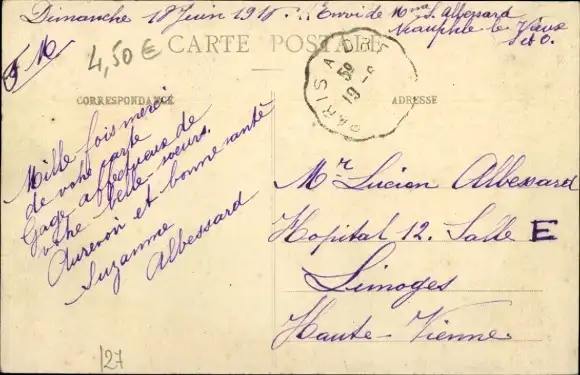 Dimanche 18 Juin 1916. Envoi de Mme S. Albessard
Neauphle le Vieux
S et O.
F M
4,50 €
CARTE POSTALE
PARIS A
CORRESPONDANCE
ADRESSE
Mille fois merci
de votre carte
Gage affectueux de
votre belle-soeurs.
Aurevoir et bonne santé
Suzanne
Albessard
Mr Lucien Albessard
Hopital 12. Salle E
Limoges
Haute-Vienne.
127